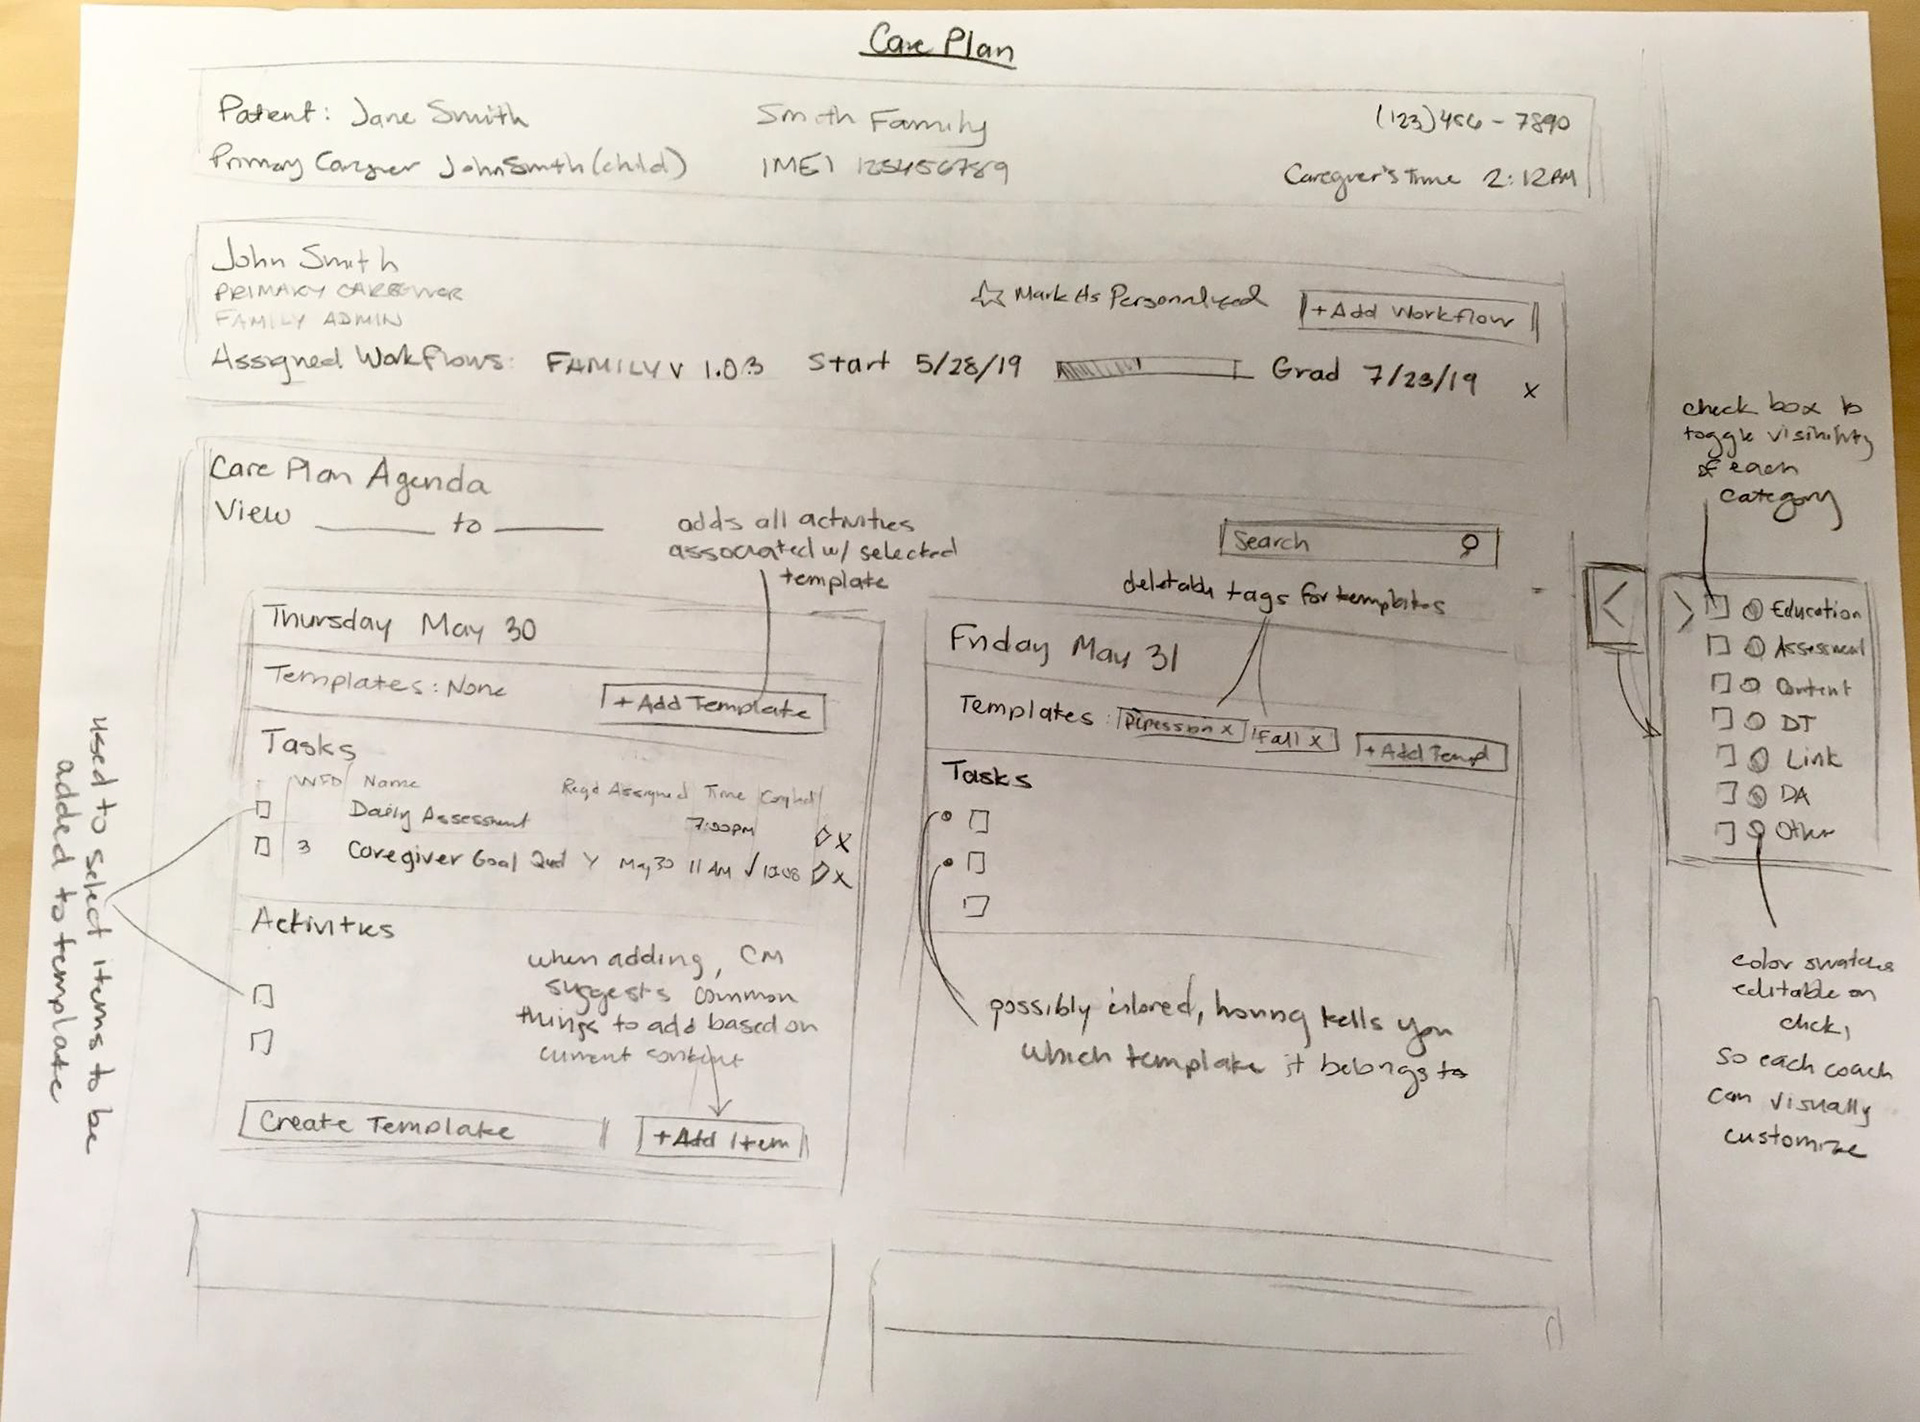 Care Plan
Patient: Jane Smith
Smith Family
(123)456-7890
Primary Caregiver John Smith (child)
IMEI 123456789
Caregiver's Time 2:12AM
John Smith
PRIMARY CAREGIVER
FAMILY ADMIN
☆ Mark As Personalized
+Add Workflow
Assigned Workflows: FAMILY v 1.0.3 Start 5/28/19 Grad 7/23/19 x
Care Plan Agenda
View ______ to ______
adds all activities
associated w/ selected
template
Search
deletable tags for templates
Thursday May 30
Templates: None
+Add Template
Tasks
WFD Name Req'd Assigned Time
Daily Assessment 7:00pm x
3 Caregiver Goal Y May 30 11 AM ✓ x
Activities
when adding, CM
suggests common
things to add based on
current content
Create Template
+Add Item
used to select items to be
added to template
Friday May 31
Templates: Depression x Fall x +Add Templ
Tasks
possibly colored, hovering tells you
which template it belongs to
<
check box to
toggle visibility
of each
category
>
Education
Assessment
Content
DT
Link
DA
Other
color swatches
editable on
click,
so each coach
can visually
customize